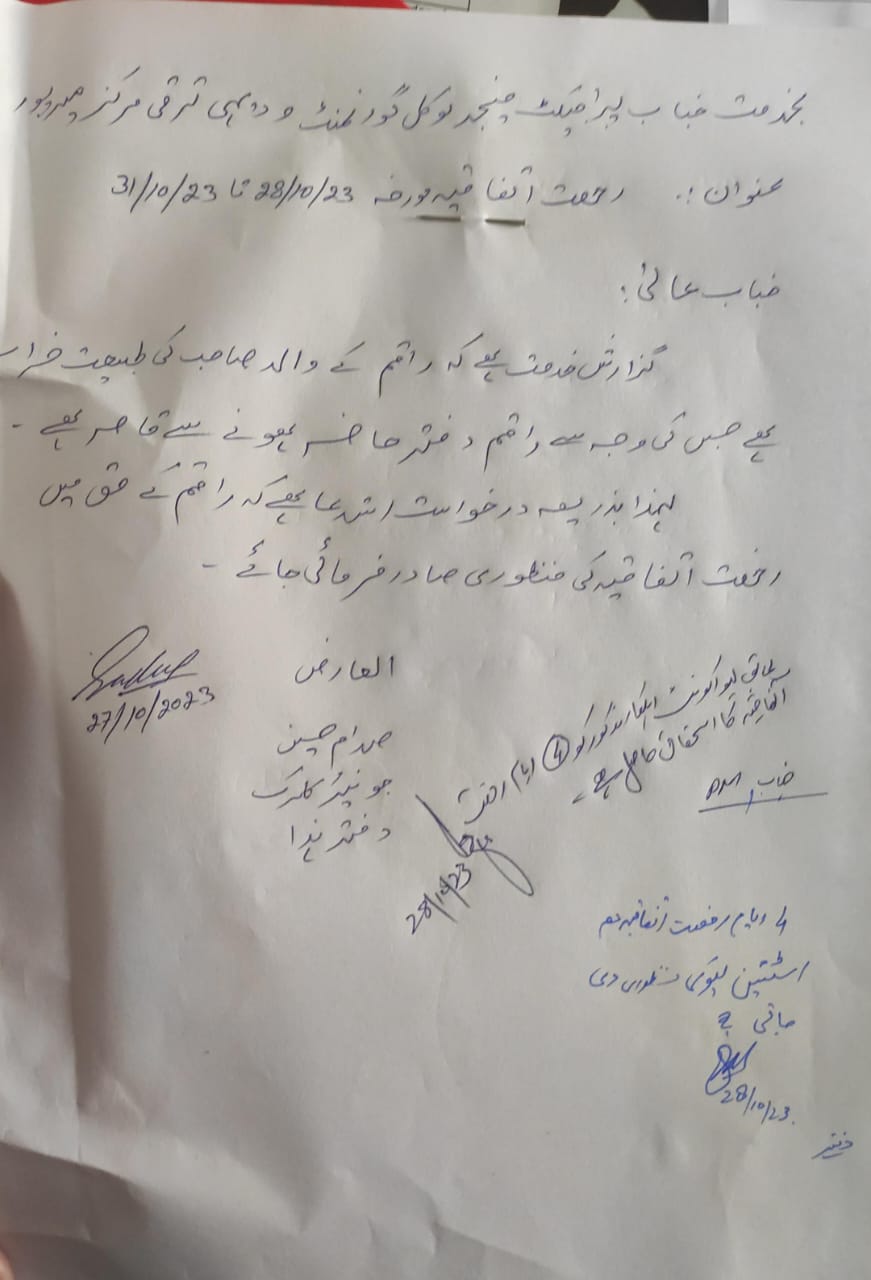 بخدمت جناب پراجیکٹ منیجر لوکل گورنمنٹ و دیہی ترقی مرکز میرپور
عنوان :. رخصت اتفاقیہ مورخہ 28/10/23 تا 31/10/23
جناب عالیٰ :
گزارش خدمت ہے کہ راقم کے والد صاحب کی طبیعت خراب
ہے جس کی وجہ سے راقم دفتر حاضر ہونے سے قاصر ہے -
لہذا بذریعہ درخواست استدعا ہے کہ راقم کے حق میں
رخصت اتفاقیہ کی منظوری صادر فرمائی جائے -
العارض
27/10/2023
صدام حسین
جونیئر کلرک
دفتر ہذا
مطابق لیو اکونٹ اہلکار مذکور کو (4) ایام رخصت
اتفاقیہ کا استحقاق حاصل ہے -
جناب PM
28/10/23
4 ایام رخصت اتفاقیہ مع
اسٹیشن لیو کی منظوری دی
جاتی ہے
28/10/23.
دفتر